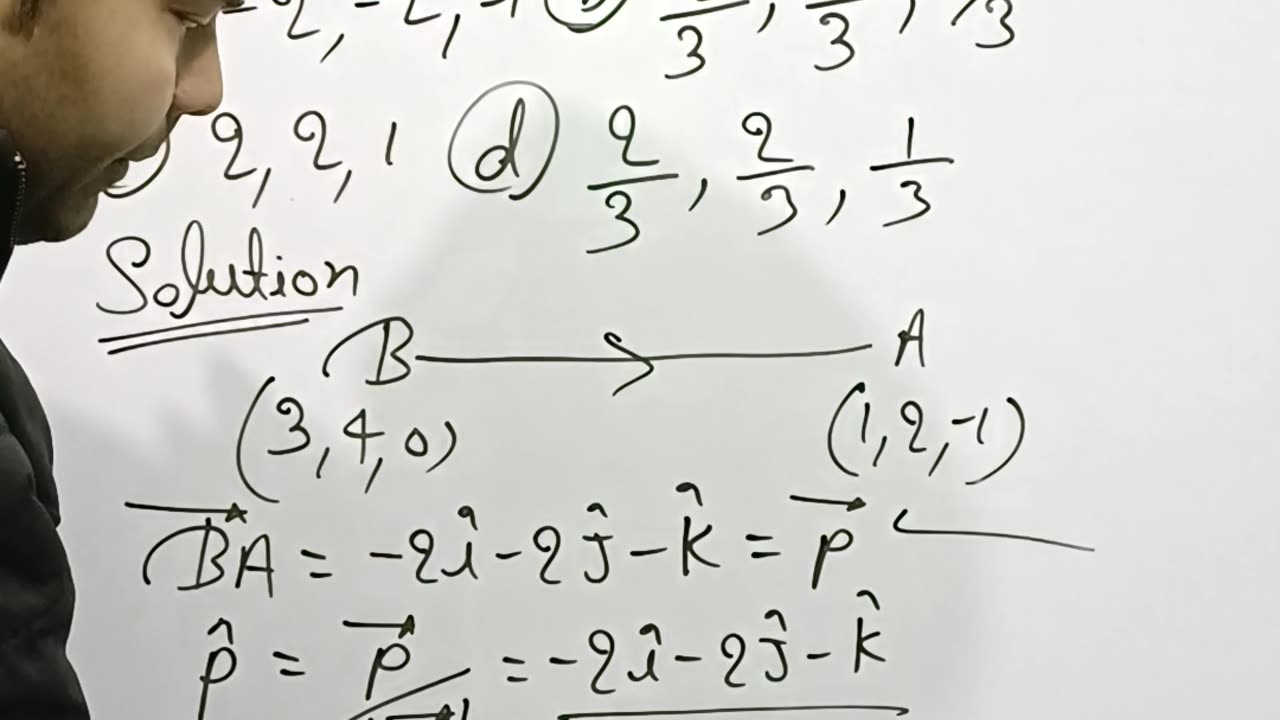 -2, -2, -1 (b) /3, /3, /3
2, 2, 1 (d) 2/3, 2/3, 1/3
Solution
B A
(3, 4, 0) (1, 2, -1)
B⃗A⃗ = -2î - 2ĵ - k̂ = p⃗
p̂ = p⃗/ = -2î - 2ĵ - k̂